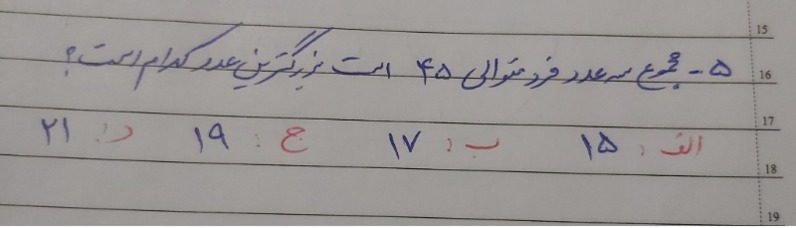 15
۵ - مجموع سه عدد فرد متوالی ۴۵ است بزرگترین عدد کدام است؟
16
17
الف: ۱۵ ب: ۱۷ ج: ۱۹ د: ۲۱
18
19